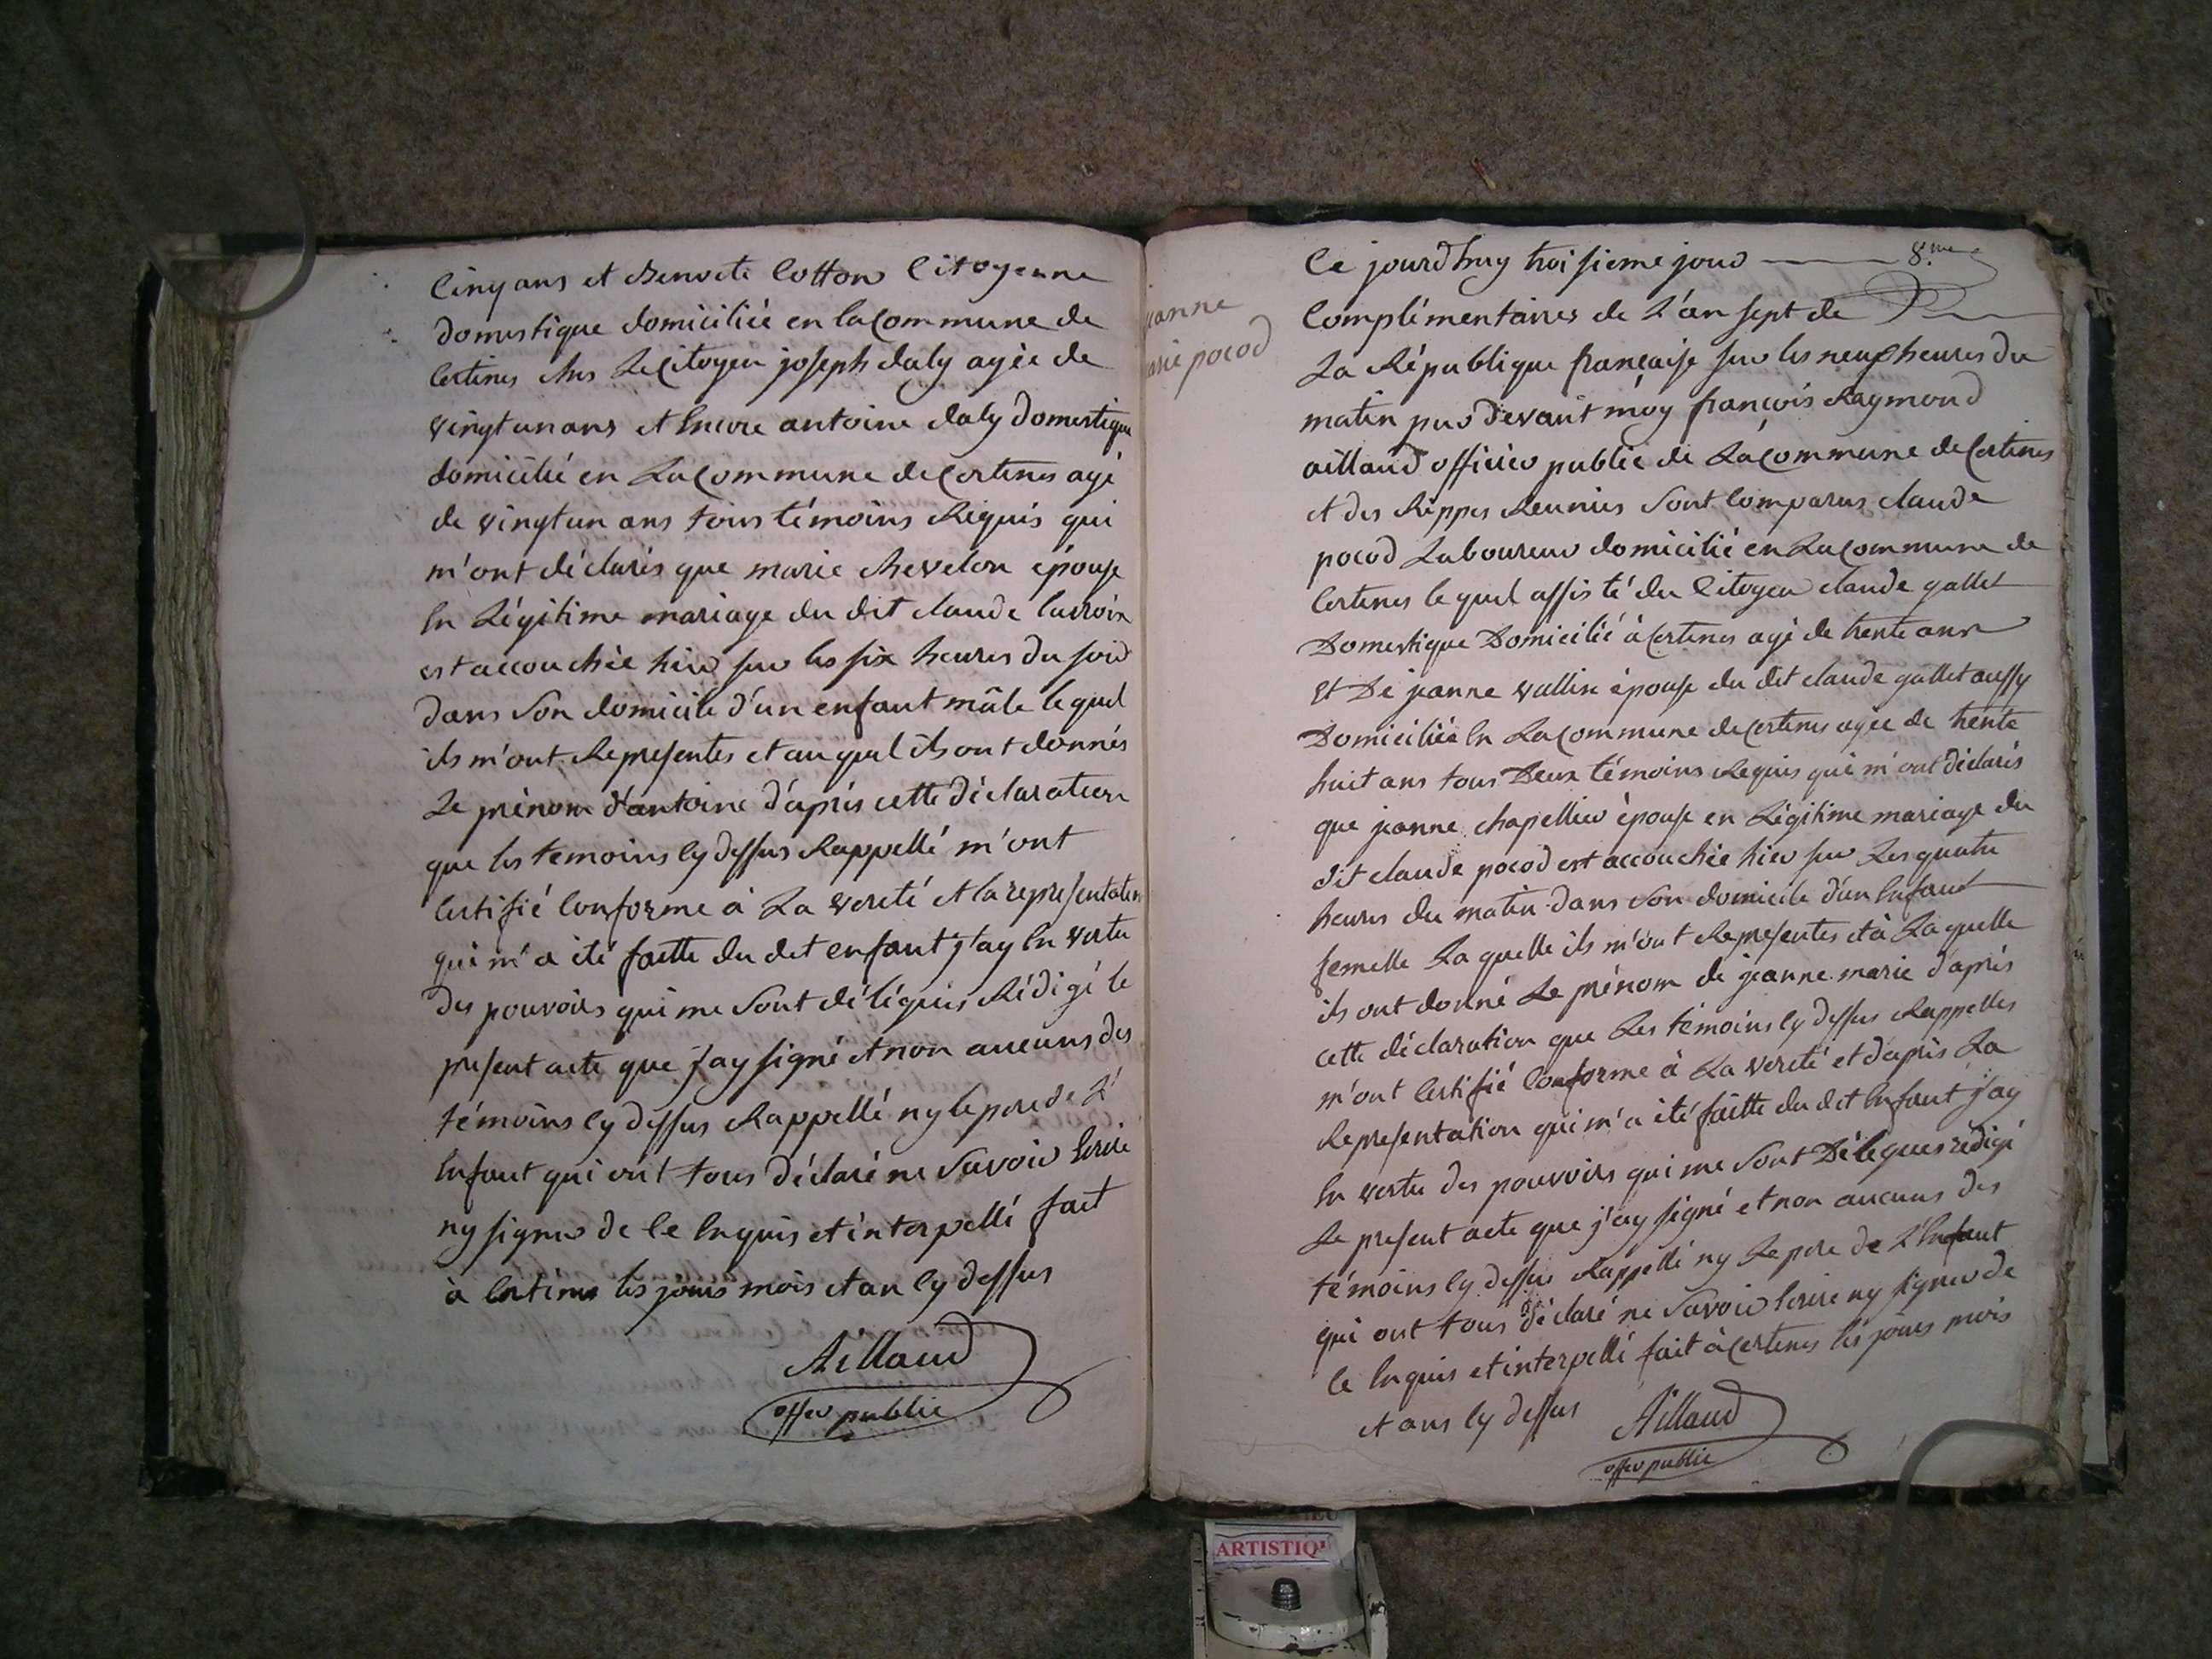 Cinq ans et Benoite Cotton Citoyenne
domestique domiciliée en la Commune de
Certines ches Le Citoyen joseph daly agée de
vingt un ans et Encore antoine daly domestique
domicilié en La Commune de Certines agé
de vingt un ans tous témoins Requis qui
m'ont déclarés que marie chevelon épouse
En Légitime mariage du dit claude lacroix
est accouchée hier sur les six heures du soir
dans Son domicile d'un enfant mâle le quel
ils m'ont Representes et au quel ils ont donnés
Le prénom d'antoine d'aprés cette déclaration
que les temoins Cy dessus Rappellé m'ont
Certifié Conforme à La verité et la representation
qui m'a été faitte du dit enfant j'ay En vertu
des pouvoirs qui me Sont délégués Rédigé le
present acte que j'ay signé et non aucuns des
témoins Cy dessus Rappellé ny le pere de L'
Enfant qui ont tous déclaré ne Savoir Ecrire
ny signer de Ce Enquis et interpellé fait
à Certines les jours mois et an Cy dessus
Aillaud
offer public
jeanne
marie pocod
8.me
Ce jourd'huy troisieme jour
Complémentaires de L'an sept de
La République française sur les neuf heures du
matin par devant moy françois Raymond
aillaud officier public de La Commune de Certines
et des Rippes Reunies Sont Comparus claude
pocod Laboureur domicilié en La Commune de
Certines le quel assisté du Citoyen claude gallet
Domestique Domicilié à Certines agé de trente ans
Et De jeanne vallin épouse du dit claude gallet aussy
Domiciliée En La Commune de Certines agée de trente
huit ans tous Deux témoins Requis qui m'ont déclarés
que jeanne chapellier épouse en Légitime mariage du
dit claude pocod est accouchée hier sur Les quatre
heures du matin dans Son domicile d'un Enfant
femelle La quelle ils m'ont Representes et à La quelle
ils ont donné Le prénom de jeanne marie d'aprés
cette déclaration que Les témoins Cy dessus Rappelles
m'ont Certifié Conforme à La verité et d'aprés La
Representation qui m'a été faitte du dit Enfant j'ay
En vertu des pouvoirs qui me Sont Délegues rédigé
Le present acte que j'ay signé et non aucuns des
témoins Cy dessus Rappellé ny Le pere de L'Enfant
qui ont tous déclaré ne Savoir Ecrire ny signer de
Ce Enquis et interpellé fait à Certines les jours mois
et ans Cy dessus
Aillaud
offer public
ARTISTIQ